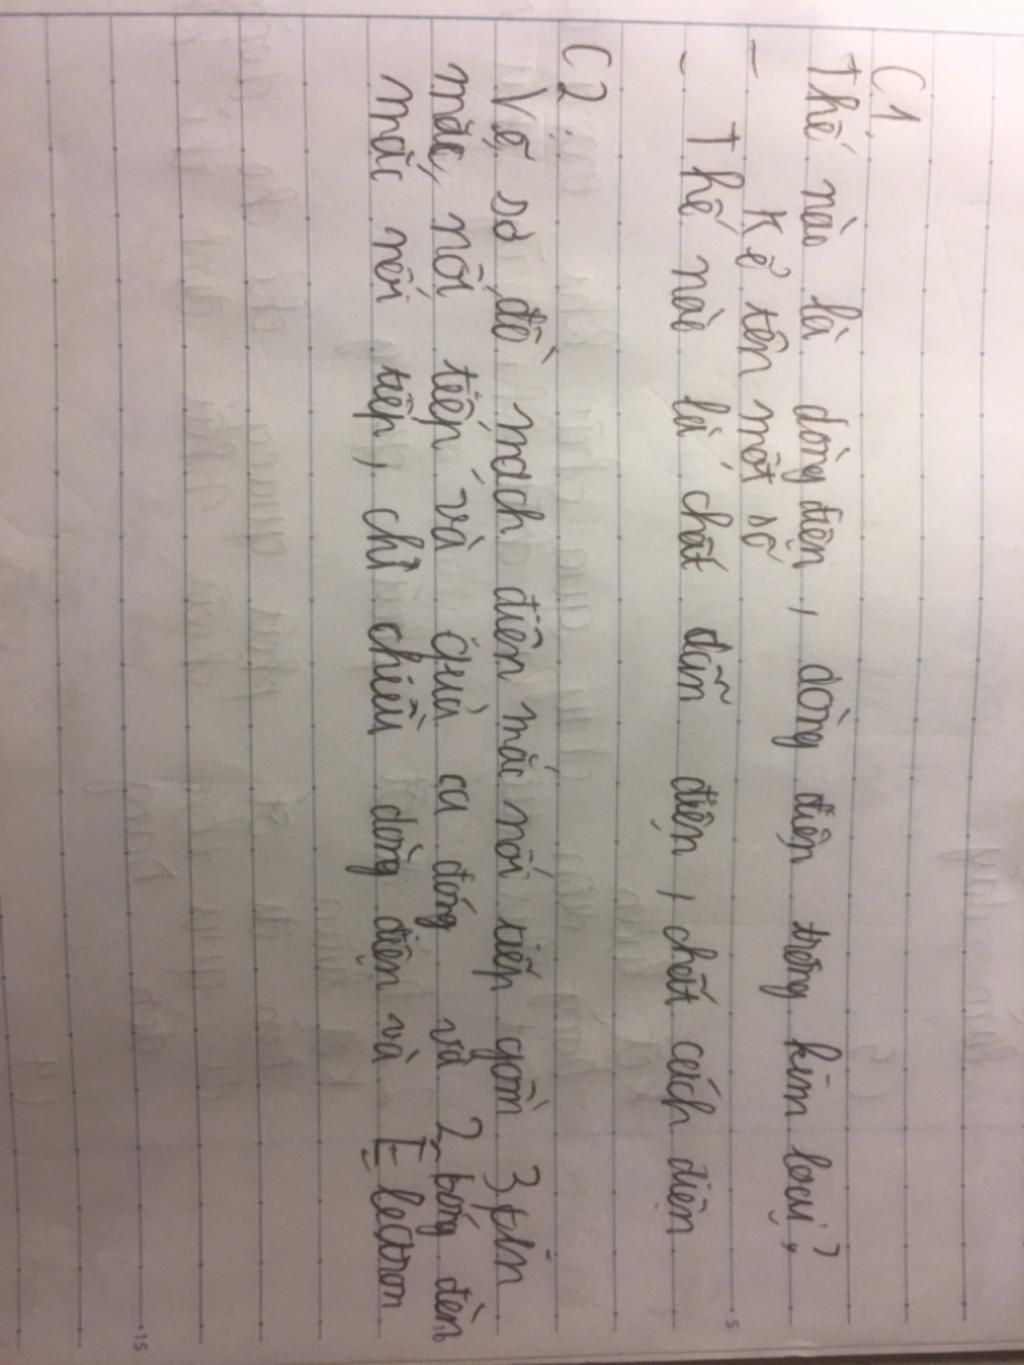 C1
Thế nào là dòng điện, dòng điện trong kim loại?
- Kể tên một số
- Thế nào là chất dẫn điện, chất cách điện
C2.
Vẽ sơ đồ mach điên mắc nối tiếp gồm 3 pin
mắc nối tiếp và quả ca đóng và 2 bóng đèn
mắc nối tiếp, chỉ chiều dòng điện và Electron
5
10
15